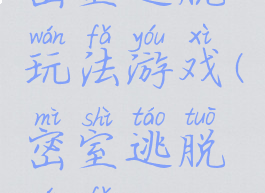 wán fǎ yóu xì
玩法游戏(
mì shì táo tuō
密室逃脱